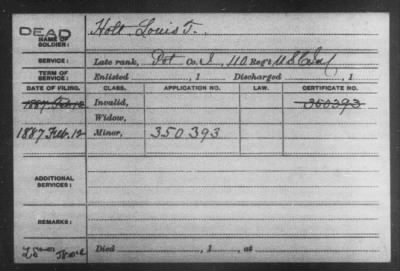 DEAD
NAME OF SOLDIER: Holt, Louis T.
SERVICE: Late rank, Pvt Co. I, 110 Reg't U.S.C. Inf
TERM OF SERVICE: Enlisted , 1 Discharged , 1
DATE OF FILING. CLASS. APPLICATION NO. LAW. CERTIFICATE NO.
1887 Feb 12 Invalid, 350393
Widow,
1887 Feb. 12 Minor, 350393
ADDITIONAL SERVICES:
REMARKS:
Died , 1 , at